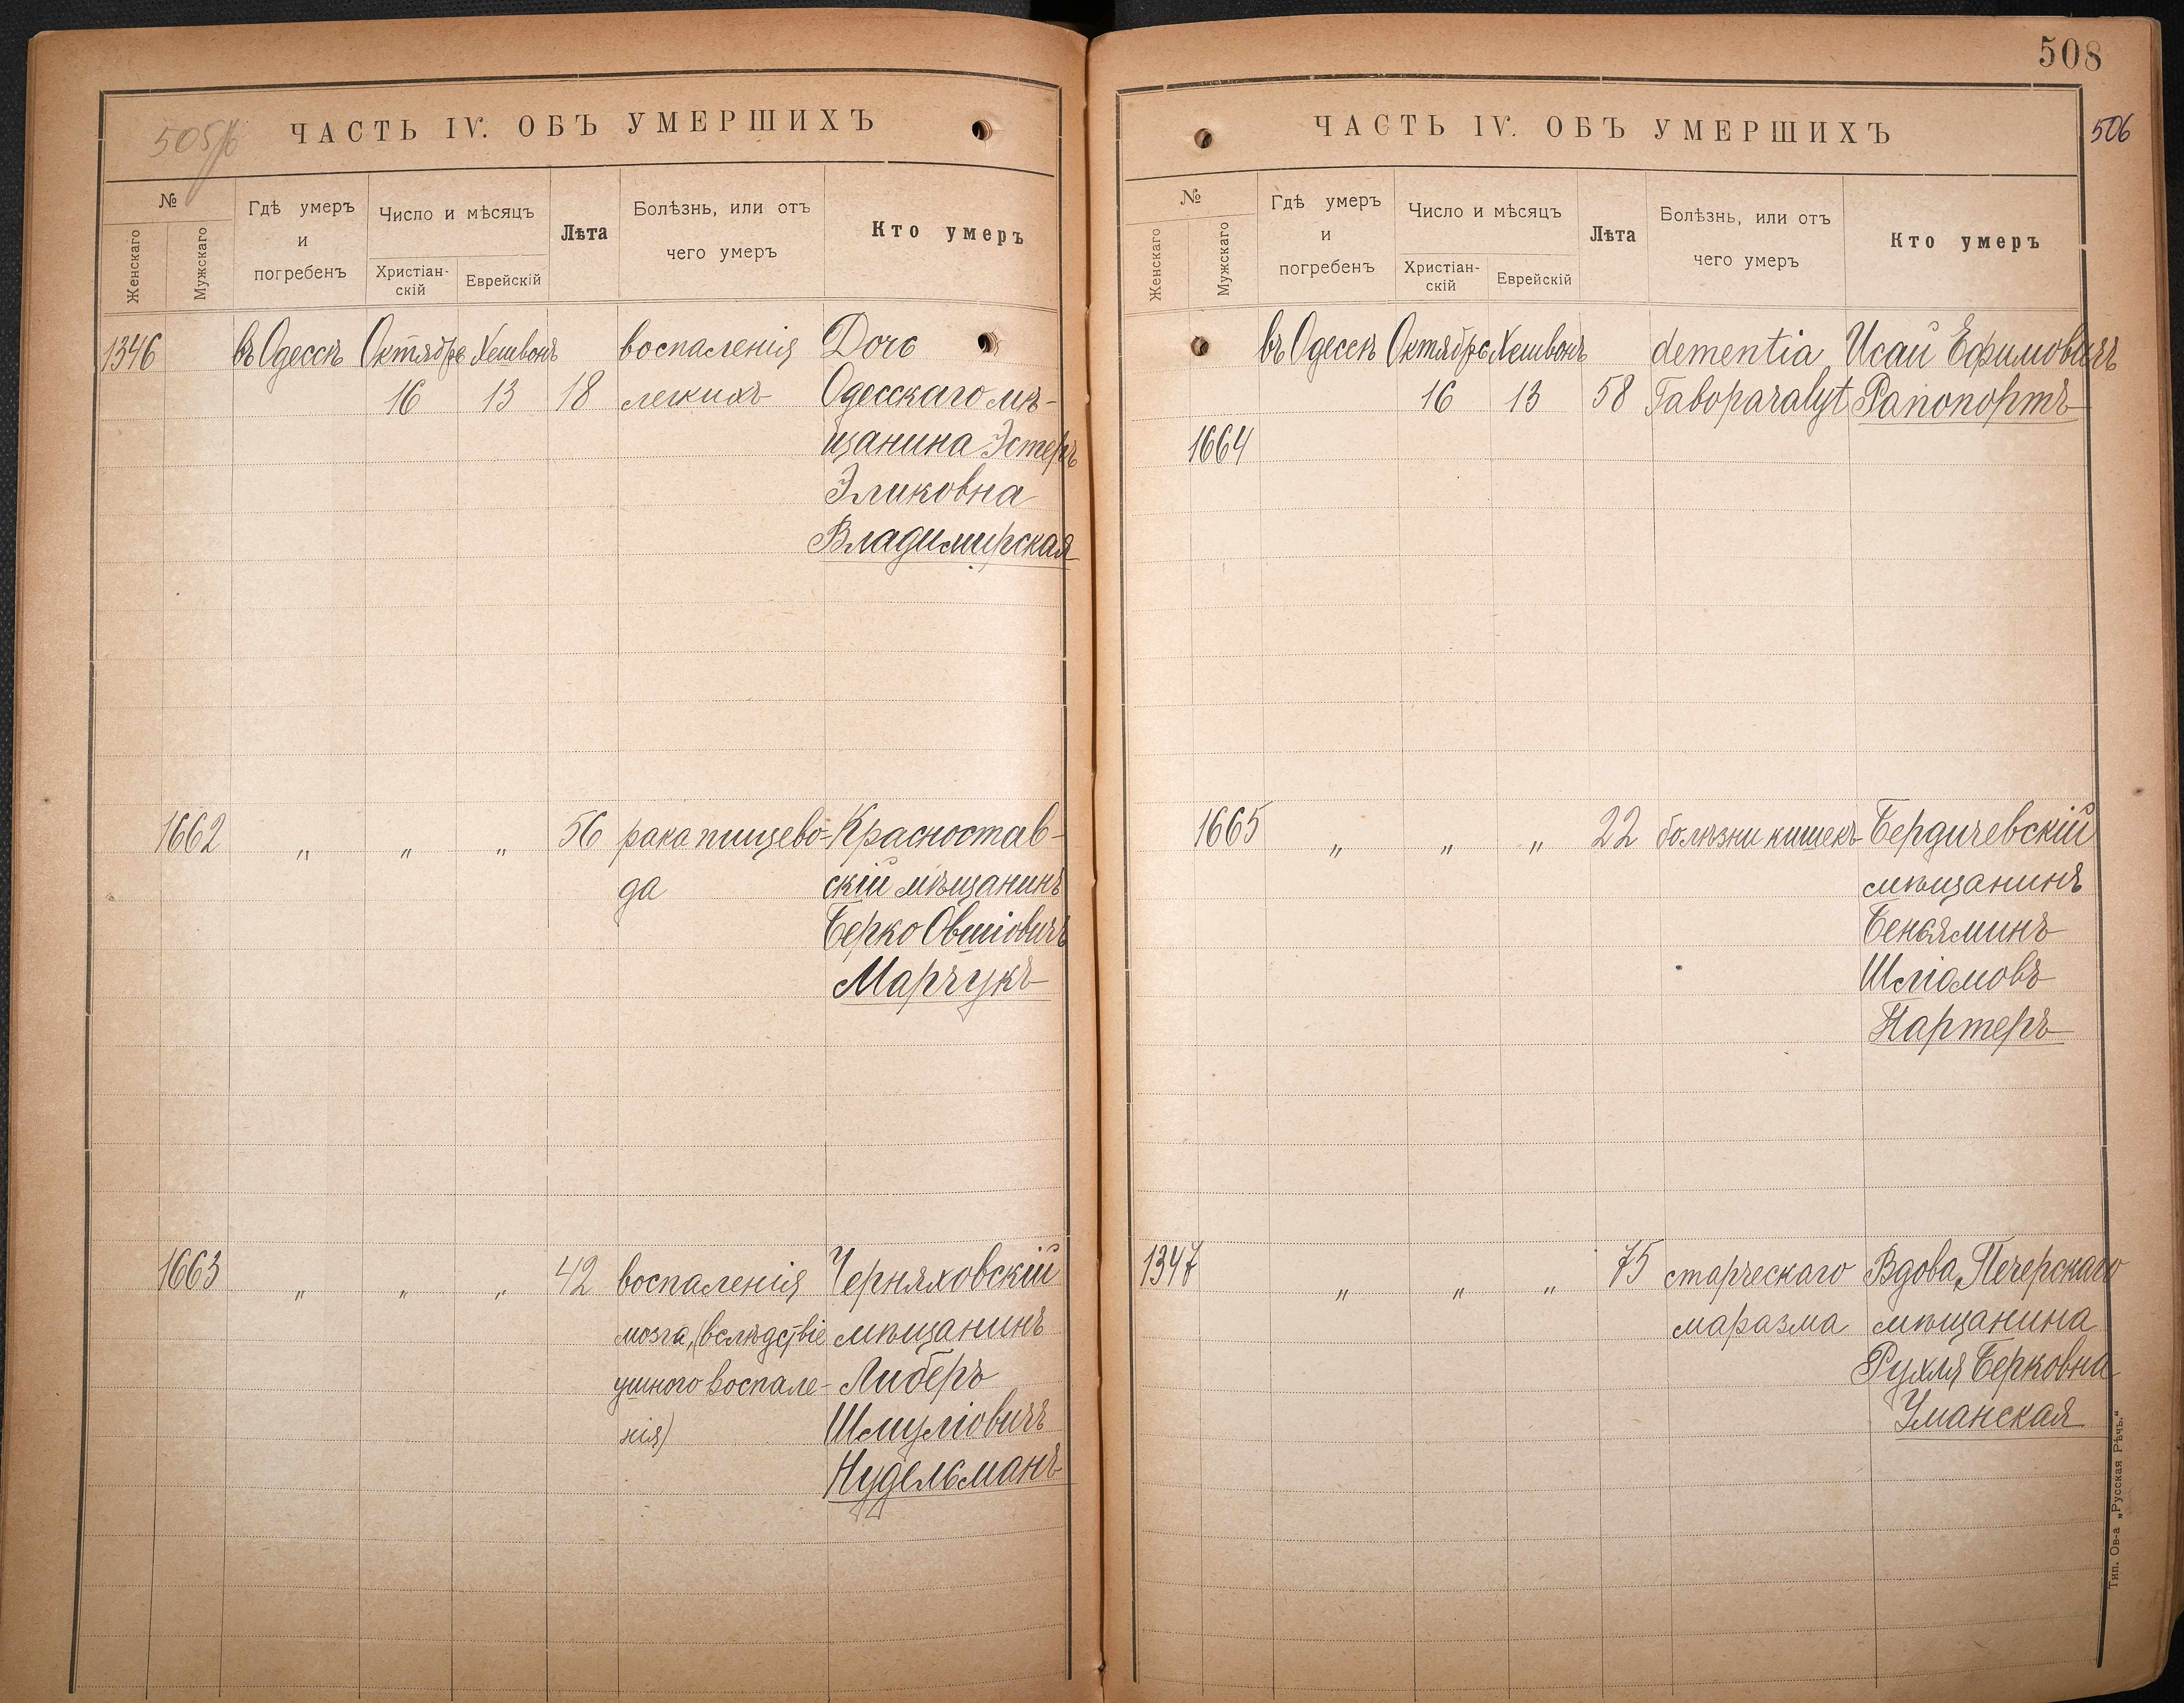 508
505/6
ЧАСТЬ IV. ОБЪ УМЕРШИХЪ
№
Женскаго
Мужскаго
Гдѣ умеръ
и
погребенъ
Число и мѣсяцъ
Христіан-
скій
Еврейскій
Лѣта
Болѣзнь, или отъ
чего умеръ
Кто умеръ
1346 въ Одессѣ Октябрь Хешвонъ воспаленія Дочь
16 13 18 легкихъ Одесскаго мѣ-
щанина Эстеръ
Эликовна
Владимирская
1662 " " " 56 рака пищево- Красностав-
да скій мѣщанинъ
Берко Овшіовичъ
Марчукъ
1663 " " " 42 воспаленія Черняховскій
мозга, (вслѣдствіе мѣщанинъ
ушного воспале- Либеръ
нія) Шмуліовичъ
Нудельманъ
ЧАСТЬ IV. ОБЪ УМЕРШИХЪ
506
№
Женскаго
Мужскаго
Гдѣ умеръ
и
погребенъ
Число и мѣсяцъ
Христіан-
скій
Еврейскій
Лѣта
Болѣзнь, или отъ
чего умеръ
Кто умеръ
въ Одессѣ Октябрь Хешвонъ dementia Исай Ефимовичъ
16 13 58 Taboparalyt Рапопортъ
1664
1665 " " " 22 болѣзни кишекъ Бердичевскій
мѣщанинъ
Беньяминъ
Шліомовъ
Партеръ
1347 " " " 75 старческаго Вдова Печерскаго
маразма мѣщанина
Рухля Берковна
Уманская
Тип. Ов-а „Русская Рѣчь."